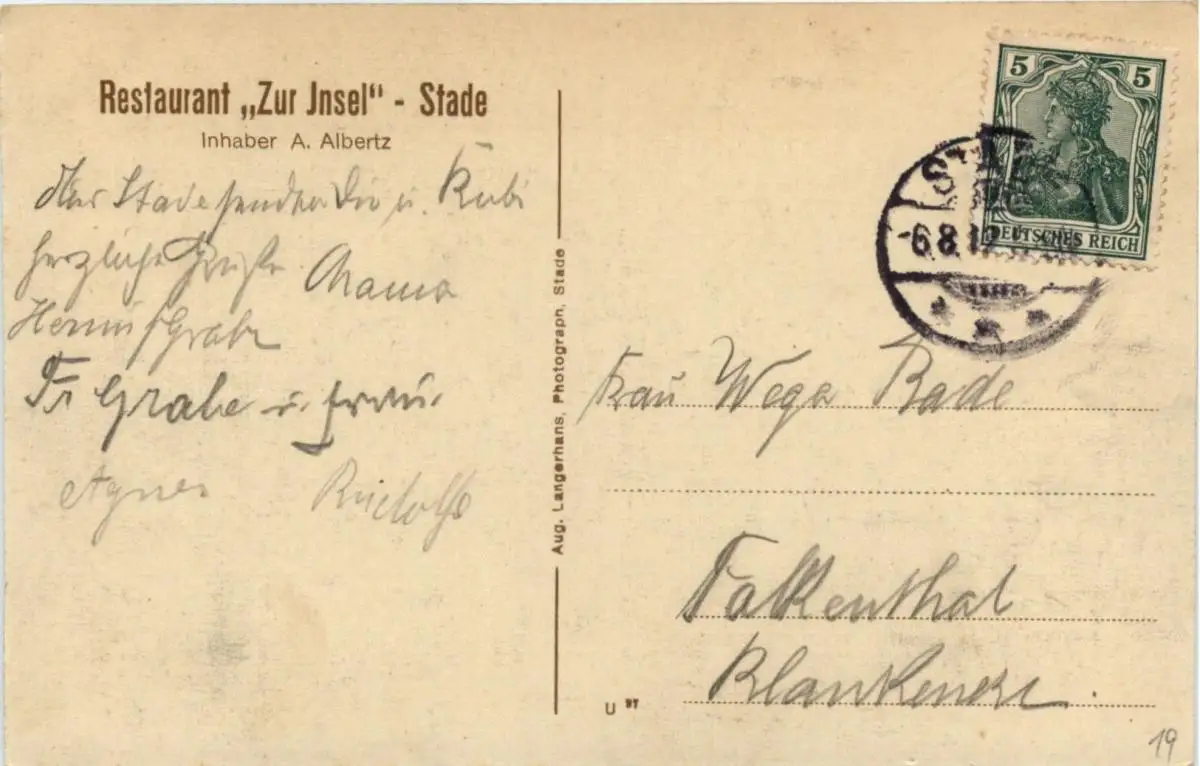 Restaurant „Zur Jnsel" - Stade
Inhaber A. Albertz
Stade u. Rudi
herzliche Grüße Mama
Grabe
Fr Grabe u. Frau.
Agnes Rudolf
Aug. Langerhans, Photograph, Stade
5 5
DEUTSCHES REICH
-6.8.1
Frau Wega Bade
Falkenthal
Blankenese.
U 97
19